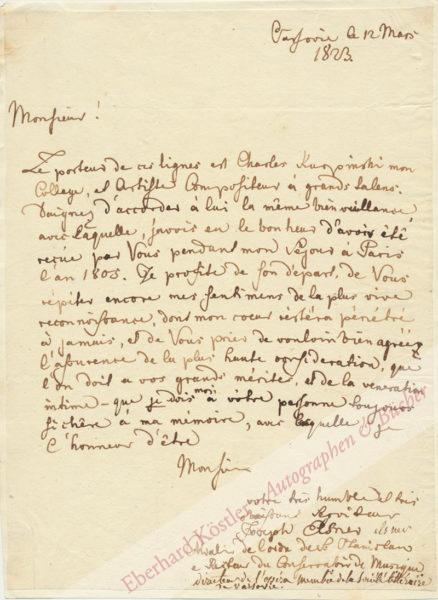 Varsovie le 12 Mars
1823.
Monsieur!
Le porteur de ces lignes est Charles Kurpinski mon
Collegue, et Artiste Compositeur à grands talens.
Daignez d'accorder à lui la même bienveillance
avec laquelle, j'avois eu le bonheur d'avoir été
reçue par Vous pendant mon séjour à Paris
l'an 1805. Je profite de son départ, de Vous
répiter encore mes sentimens de la plus vive
reconnoissance, dont mon coeur réstéra pénétré
à jamais, et de Vous prier de vouloir bien agréez
l'assurence de la plus haute consideration, que
l'on doit a vos grands mérites, et de la veneration
intime - que je dois moi à vôtre personne toujours
si chère à ma mémoire, avec laquelle je
l'honneur d'être
Monsieur
votre très humble et très
Serviteur
Joseph Elsner
de l'ordre de St Stanislas
Recteur du Conservatoire de Musique
directeur de l'opera membre de la Société littéraire
de Varsovie.
Eberhard Köstler - Autographen & Bücher